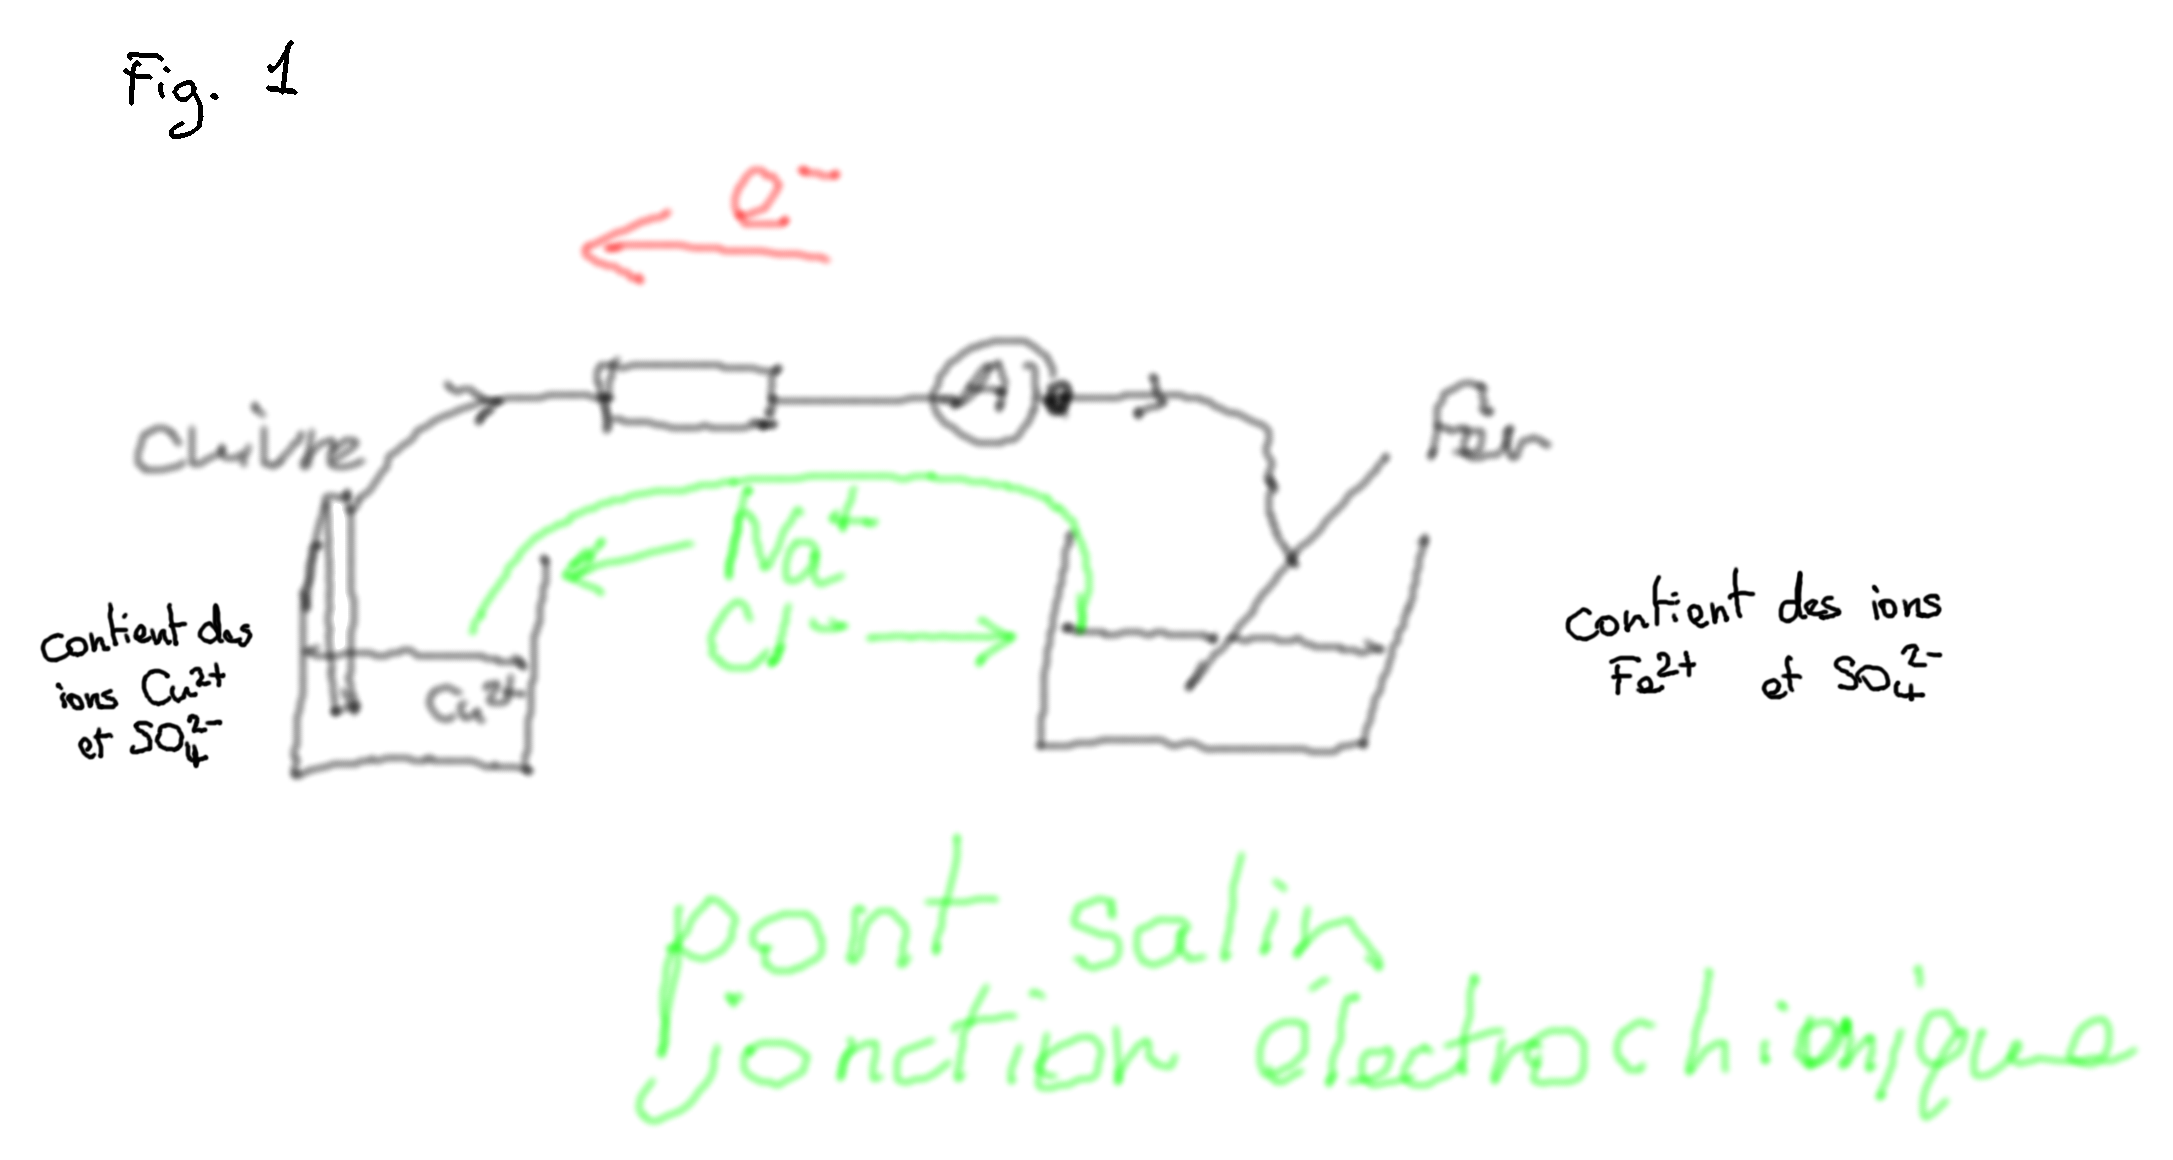 Fig. 1
e⁻
A
Cuivre
Fer
Na⁺
Cl⁻
contient des
ions Cu²⁺
et SO₄²⁻
Cu²⁺
contient des ions
Fe²⁺ et SO₄²⁻
pont salin
jonction électrochimique